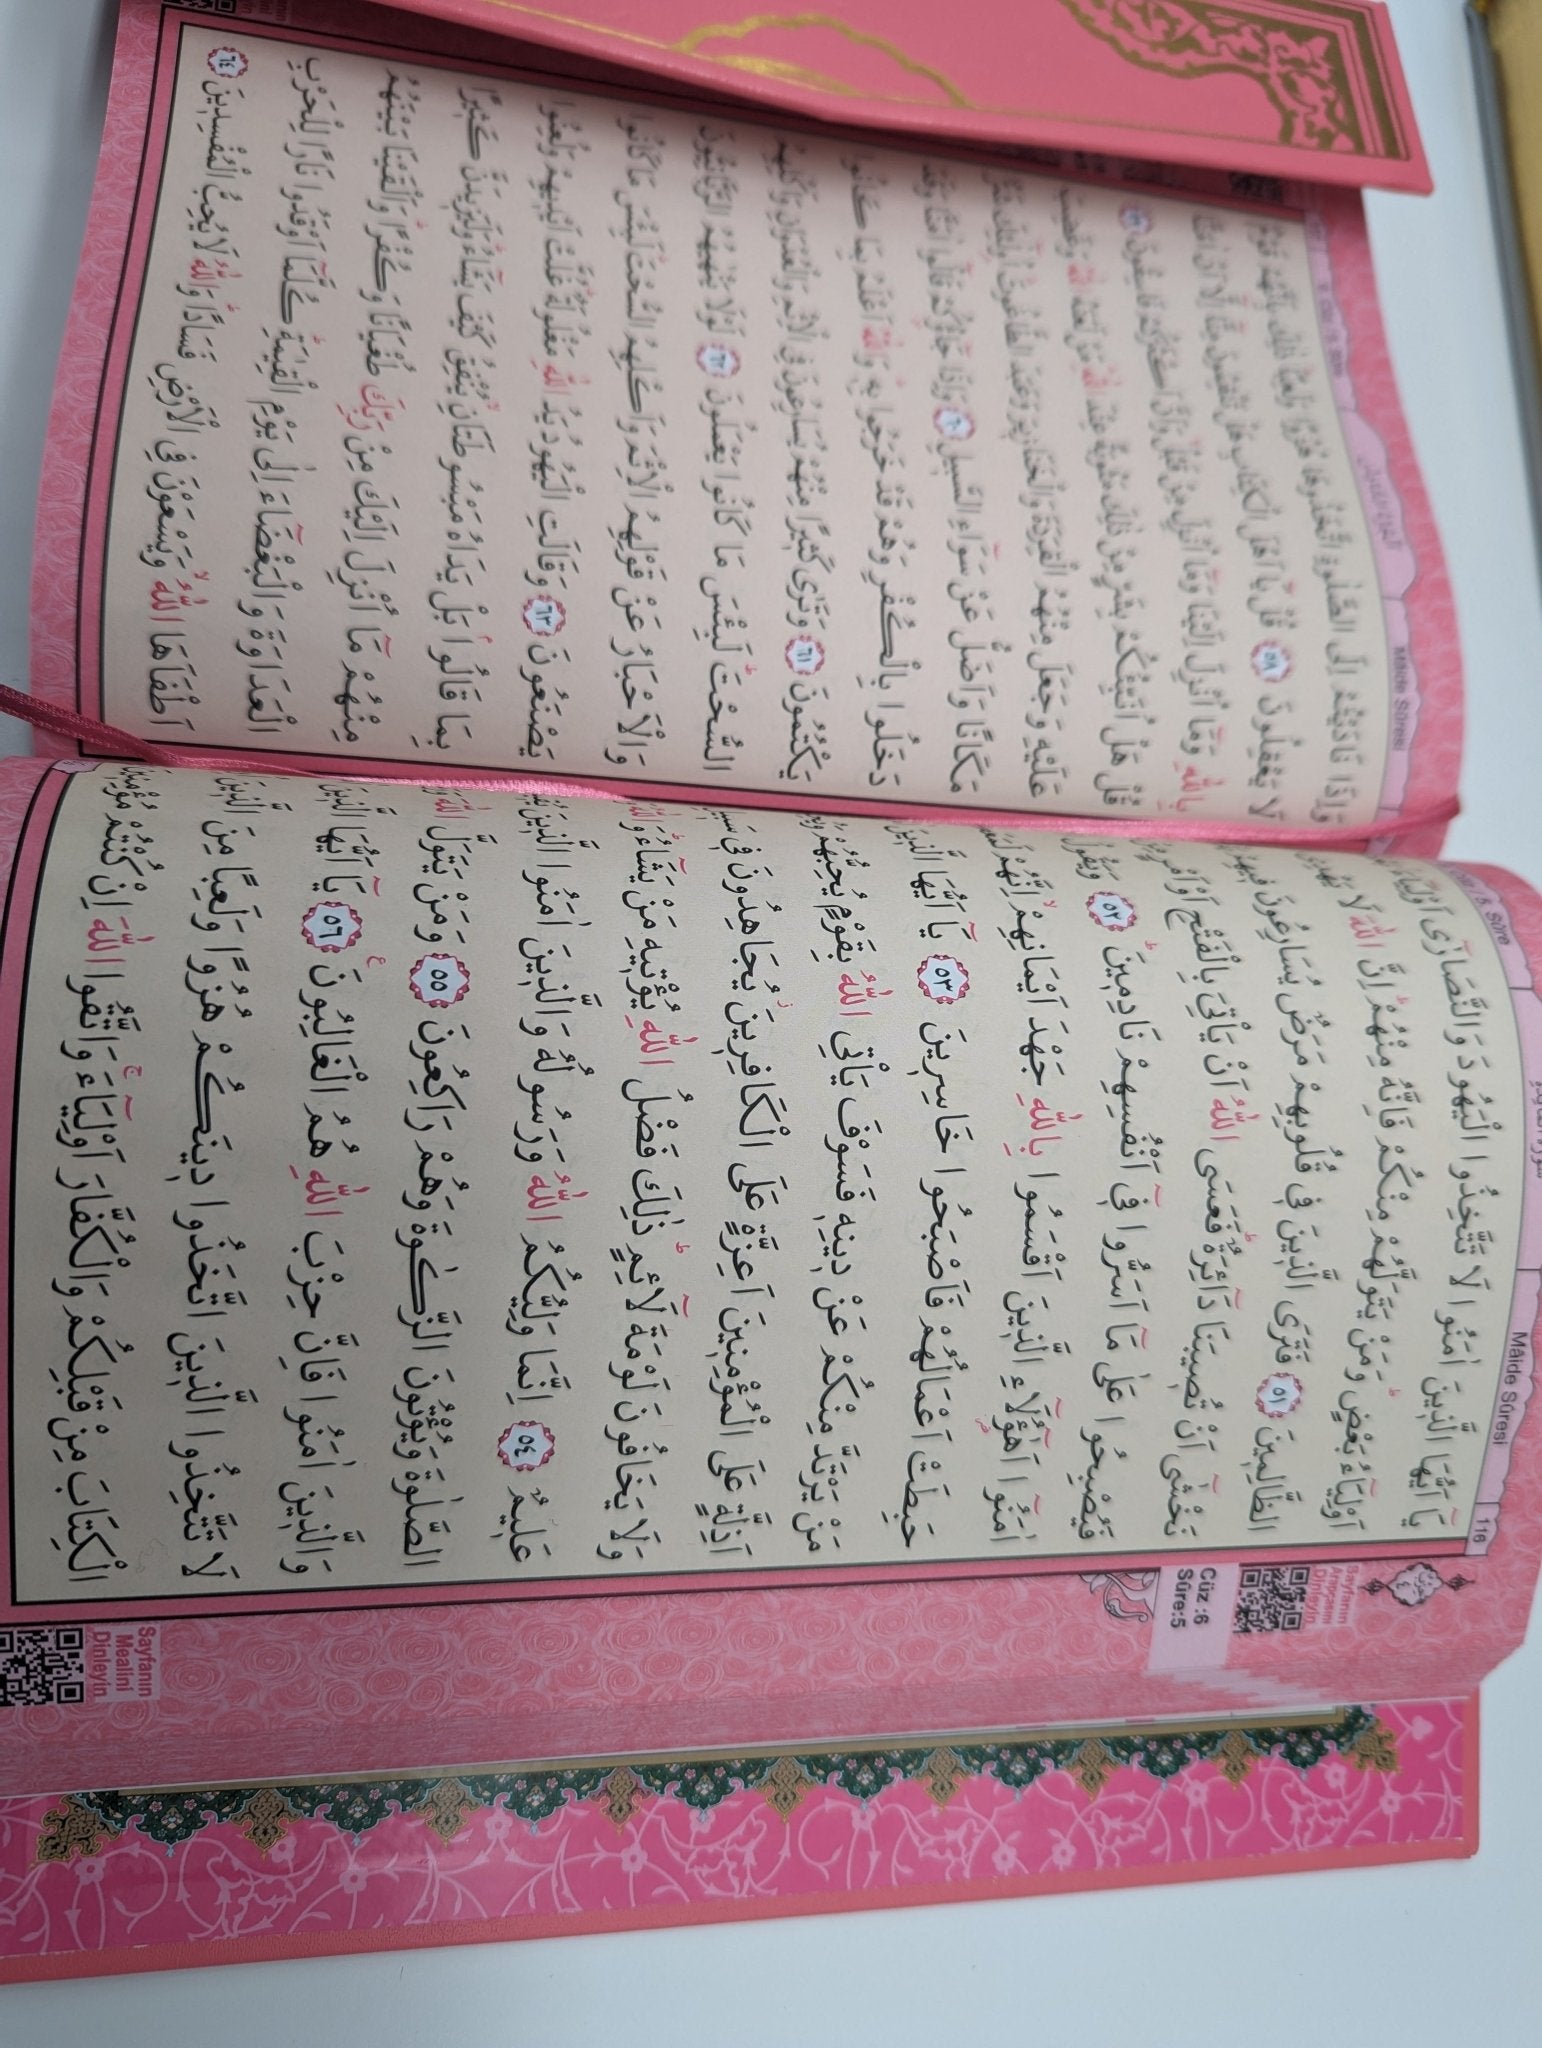 116 Mâide Sûresi
Sayfanın Arapçasını Dinleyin
Cüz :6
Sûre:5
يَٓا اَيُّهَا الَّذ۪ينَ اٰمَنُوا لَا تَتَّخِذُوا الْيَهُودَ وَالنَّصَارٰٓى اَوْلِيَٓاءَ
اَوْلِيَٓاءُ بَعْضٍۜ وَمَنْ يَتَوَلَّهُمْ مِنْكُمْ فَاِنَّهُ مِنْهُمْۜ اِنَّ اللّٰهَ لَا يَهْدِي
الظَّالِم۪ينَ ﴿٥١﴾ فَتَرَى الَّذ۪ينَ ف۪ي قُلُوبِهِمْ مَرَضٌ يُسَارِعُونَ ف۪يهِمْ
نَخْشٰٓى اَنْ تُص۪يبَنَا دَٓائِرَةٌۜ فَعَسَى اللّٰهُ اَنْ يَأْتِيَ بِالْفَتْحِ اَوْ اَمْرٍ
فَيُصْبِحُوا عَلٰى مَٓا اَسَرُّوا ف۪ٓي اَنْفُسِهِمْ نَادِم۪ينَۜ ﴿٥٢﴾ وَيَقُولُ
اٰمَنُٓوا اَهٰٓؤُ۬لَٓاءِ الَّذ۪ينَ اَقْسَمُوا بِاللّٰهِ جَهْدَ اَيْمَانِهِمْۙ اِنَّهُمْ
حَبِطَتْ اَعْمَالُهُمْ فَاَصْبَحُوا خَاسِر۪ينَ ﴿٥٣﴾ يَٓا اَيُّهَا الَّذ۪ينَ
مَنْ يَرْتَدَّ مِنْكُمْ عَنْ د۪ينِه۪ فَسَوْفَ يَأْتِي اللّٰهُ بِقَوْمٍ يُحِبُّهُمْ
اَذِلَّةٍ عَلَى الْمُؤْمِن۪ينَ اَعِزَّةٍ عَلَى الْكَافِر۪ينَۘ يُجَاهِدُونَ ف۪ي
وَلَا يَخَافُونَ لَوْمَةَ لَٓائِمٍۜ ذٰلِكَ فَضْلُ اللّٰهِ يُؤْت۪يهِ مَنْ يَشَٓاءُۜ
عَل۪يمٌ ﴿٥٤﴾ اِنَّمَا وَلِيُّكُمُ اللّٰهُ وَرَسُولُهُ وَالَّذ۪ينَ اٰمَنُوا الَّذ۪ينَ
الصَّلٰوةَ وَيُؤْتُونَ الزَّكٰوةَ وَهُمْ رَاكِعُونَ ﴿٥٥﴾ وَمَنْ يَتَوَلَّ اللّٰهَ
وَالَّذ۪ينَ اٰمَنُوا فَاِنَّ حِزْبَ اللّٰهِ هُمُ الْغَالِبُونَ۟ ﴿٥٦﴾ يَٓا اَيُّهَا الَّذ۪ينَ
لَا تَتَّخِذُوا الَّذ۪ينَ اتَّخَذُوا د۪ينَكُمْ هُزُوًا وَلَعِبًا مِنَ الَّذ۪ينَ
الْكِتَابَ مِنْ قَبْلِكُمْ وَالْكُفَّارَ اَوْلِيَٓاءَۚ وَاتَّقُوا اللّٰهَ اِنْ كُنْتُمْ مُؤْمِن۪ينَ
Sayfanın Mealini Dinleyin
Mâide Sûresi
وَاِذَا نَادَيْتُمْ اِلَى الصَّلٰوةِ اتَّخَذُوهَا هُزُوًا وَلَعِبًاۜ ذٰلِكَ بِاَنَّهُمْ قَوْمٌ
لَا يَعْقِلُونَ ﴿٥٨﴾ قُلْ يَٓا اَهْلَ الْكِتَابِ هَلْ تَنْقِمُونَ مِنَّٓا اِلَّٓا اَنْ اٰمَنَّا
بِاللّٰهِ وَمَٓا اُنْزِلَ اِلَيْنَا وَمَٓا اُنْزِلَ مِنْ قَبْلُۙ وَاَنَّ اَكْثَرَكُمْ فَاسِقُونَ ﴿٥٩﴾
قُلْ هَلْ اُنَبِّئُكُمْ بِشَرٍّ مِنْ ذٰلِكَ مَثُوبَةً عِنْدَ اللّٰهِۜ مَنْ لَعَنَهُ اللّٰهُ وَغَضِبَ
عَلَيْهِ وَجَعَلَ مِنْهُمُ الْقِرَدَةَ وَالْخَنَاز۪يرَ وَعَبَدَ الطَّاغُوتَۜ اُو۬لٰٓئِكَ شَرٌّ
مَكَانًا وَاَضَلُّ عَنْ سَوَٓاءِ السَّب۪يلِ ﴿٦٠﴾ وَاِذَا جَٓاؤُ۫كُمْ قَالُٓوا اٰمَنَّا وَقَدْ
دَخَلُوا بِالْكُفْرِ وَهُمْ قَدْ خَرَجُوا بِه۪ۜ وَاللّٰهُ اَعْلَمُ بِمَا كَانُوا
يَكْتُمُونَ ﴿٦١﴾ وَتَرٰى كَث۪يرًا مِنْهُمْ يُسَارِعُونَ فِي الْاِثْمِ وَالْعُدْوَانِ وَاَكْلِهِمُ
السُّحْتَۜ لَبِئْسَ مَا كَانُوا يَعْمَلُونَ ﴿٦٢﴾ لَوْلَا يَنْهٰيهُمُ الرَّبَّانِيُّونَ
وَالْاَحْبَارُ عَنْ قَوْلِهِمُ الْاِثْمَ وَاَكْلِهِمُ السُّحْتَۜ لَبِئْسَ مَا كَانُوا
يَصْنَعُونَ ﴿٦٣﴾ وَقَالَتِ الْيَهُودُ يَدُ اللّٰهِ مَغْلُولَةٌۜ غُلَّتْ اَيْد۪يهِمْ وَلُعِنُوا
بِمَا قَالُواۢ بَلْ يَدَاهُ مَبْسُوطَتَانِۙ يُنْفِقُ كَيْفَ يَشَٓاءُۜ وَلَيَز۪يدَنَّ كَث۪يرًا
مِنْهُمْ مَٓا اُنْزِلَ اِلَيْكَ مِنْ رَبِّكَ طُغْيَانًا وَكُفْرًاۜ وَاَلْقَيْنَا بَيْنَهُمُ
الْعَدَاوَةَ وَالْبَغْضَٓاءَ اِلٰى يَوْمِ الْقِيٰمَةِۜ كُلَّمَٓا اَوْقَدُوا نَارًا لِلْحَرْبِ
اَطْفَاَهَا اللّٰهُۙ وَيَسْعَوْنَ فِي الْاَرْضِ فَسَادًاۜ وَاللّٰهُ لَا يُحِبُّ الْمُفْسِد۪ينَ ﴿٦٤﴾